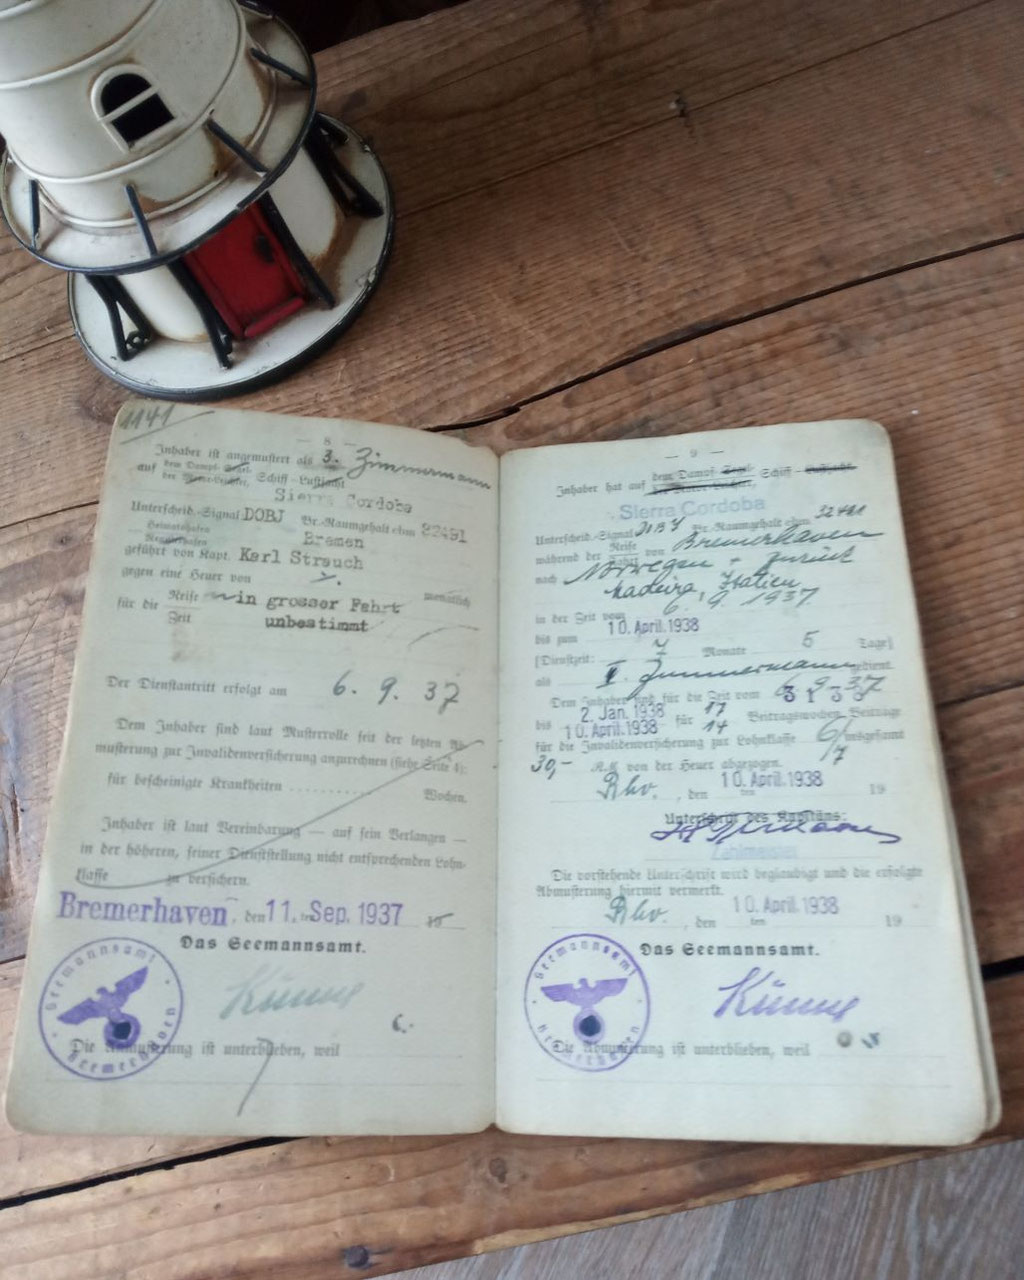 1141
— 8 —
Inhaber ist angemustert als 3. Zimmermann
auf dem Dampf- Segel- Schiff - Luftjacht
der Motor-
Sierra Cordoba
Unterscheid.-Signal DOBJ Br.-Raumgehalt cbm 32491
Heimatshafen Bremen
geführt von Kapt. Karl Strauch
gegen eine Heuer von monatlich
für die Reise in grosser Fahrt
Zeit unbestimmt
Der Dienstantritt erfolgt am 6. 9. 37
Dem Inhaber sind laut Musterrolle seit der letzten Ab-
musterung zur Invalidenversicherung anzurechnen (siehe Seite 4):
für bescheinigte Krankheiten Wochen.
Inhaber ist laut Vereinbarung — auf sein Verlangen —
in der höheren, seiner Dienststellung nicht entsprechenden Lohn-
klasse zu versichern.
Bremerhaven, den 11. Sep. 1937 19
Das Seemannsamt.
Seemannsamt Bremerhaven
Künne
Die Abmusterung ist unterblieben, weil
— 9 —
Inhaber hat auf dem Dampf- Segel- Schiff -
Sierra Cordoba
Unterscheid.-Signal DOBJ Br.-Raumgehalt cbm 32491
während der Reise von Bremerhaven
nach Norwegen - zurück
Madeira, Italien
in der Zeit vom 6. 9. 1937
bis zum 10. April. 1938
[Dienstzeit: 7 Monate 5 Tage]
als I. Zimmermann gedient.
Dem Inhaber sind für die Zeit vom 6 9 37
bis 2. Jan. 1938 für 17 Beitragswochen Beiträge
10. April. 1938 14
für die Invalidenversicherung zur Lohnklasse 6/7 insgesamt
30,- R.M. von der Heuer abgezogen.
Bhv., den 10. April. 1938 19
Unterschrift des Kapitäns:
Zahlmeister
Die vorstehende Unterschrift wird beglaubigt und die erfolgte
Abmusterung hiermit vermerkt.
Bhv., den 10. April. 1938 19
Das Seemannsamt.
Seemannsamt Bremerhaven
Künne
Die Abmusterung ist unterblieben, weil